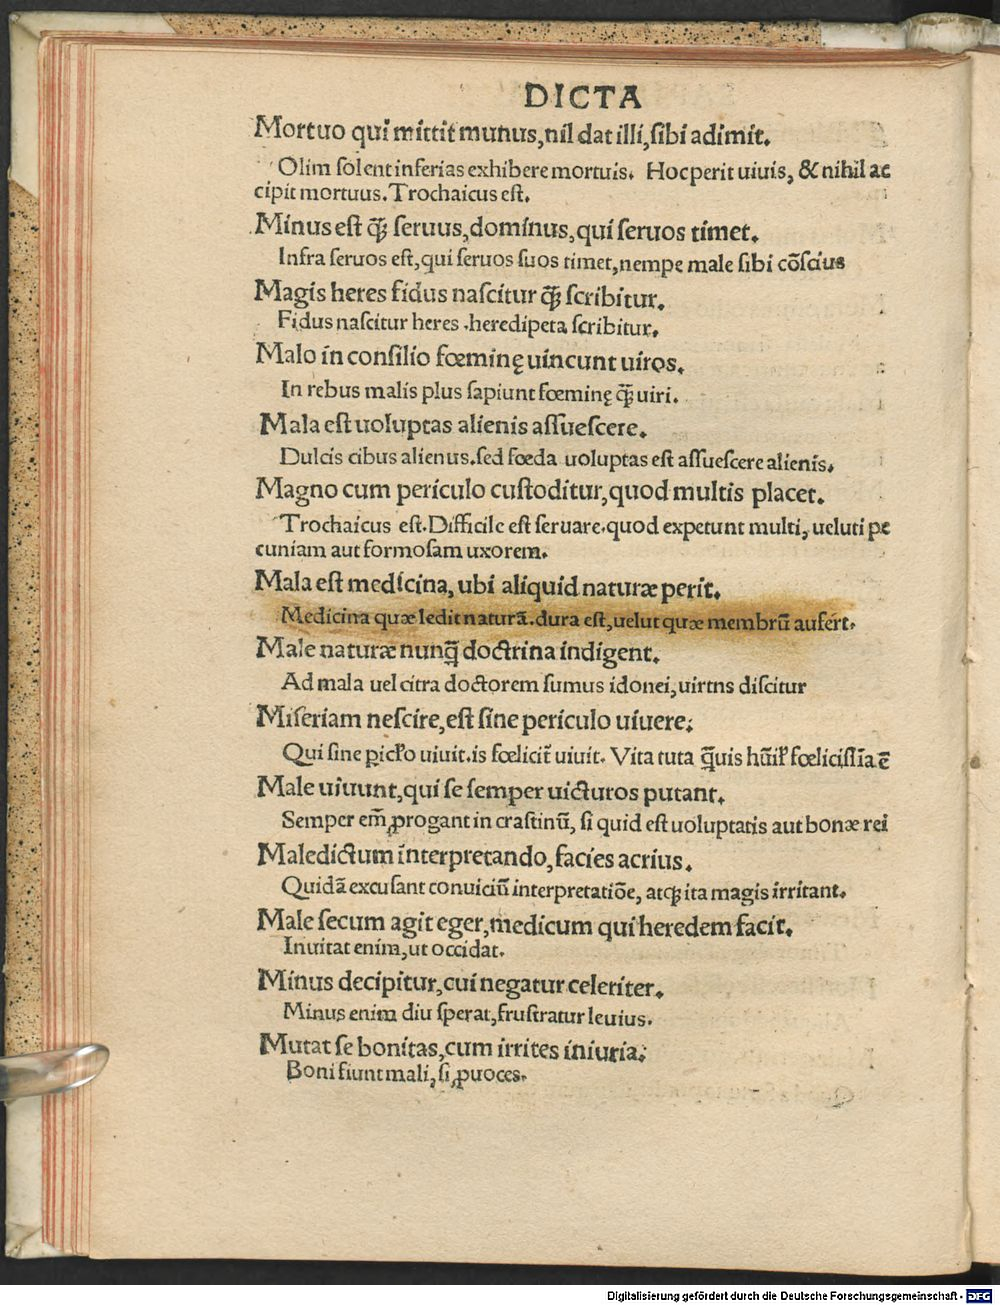 DICTA
Mortuo qui mittit munus, nil dat illi, sibi adimit.
Olim solent inferias exhibere mortuis. Hoc perit uiuis, & nihil ac
cipit mortuus. Trochaicus est.
Minus est q̃ꝫ seruus, dominus, qui seruos timet.
Infra seruos est, qui seruos suos timet, nempe male sibi cõscius
Magis heres fidus nascitur q̃ꝫ scribitur.
Fidus nascitur heres .heredipeta scribitur.
Malo in consilio fœminę uincunt uiros.
In rebus malis plus sapiunt fœminę q̃ꝫ uiri.
Mala est uoluptas alienis assuescere.
Dulcis cibus alienus.sed fœda uoluptas est assuescere alienis.
Magno cum periculo custoditur, quod multis placet.
Trochaicus est. Difficile est seruare.quod expetunt multi, ueluti pe
cuniam aut formosam uxorem.
Mala est medicina, ubi aliquid naturæ perit.
Medicina quæ ledit naturã.dura est, uelut quæ membrũ aufert.
Male naturæ nunq̃ doctrina indigent.
Ad mala uel citra doctorem sumus idonei, uirtns discitur
Miseriam nescire, est sine periculo uiuere.
Qui sine ꝑicľo uiuit.is fœlicit᷑ uiuit. Vita tuta q̃uis hũiľ fœliciſſĩa ẽ
Male uiuunt, qui se semper uicturos putant.
Semper em̃ ꝓrogant in crastinũ, si quid est uoluptatis aut bonæ rei
Maledictum interpretando, facies acrius.
Quidã excusant conuiciũ interpretatiõe, atqꝫ ita magis irritant.
Male secum agit eger, medicum qui heredem facit.
Inuitat enim, ut occidat.
Minus decipitur, cui negatur celeriter.
Minus enim diu sperat, frustratur leuius.
Mutat se bonitas, cum irrites iniuria.
Boni fiunt mali, si ꝓuoces.
Digitalisierung gefördert durch die Deutsche Forschungsgemeinschaft - DFG